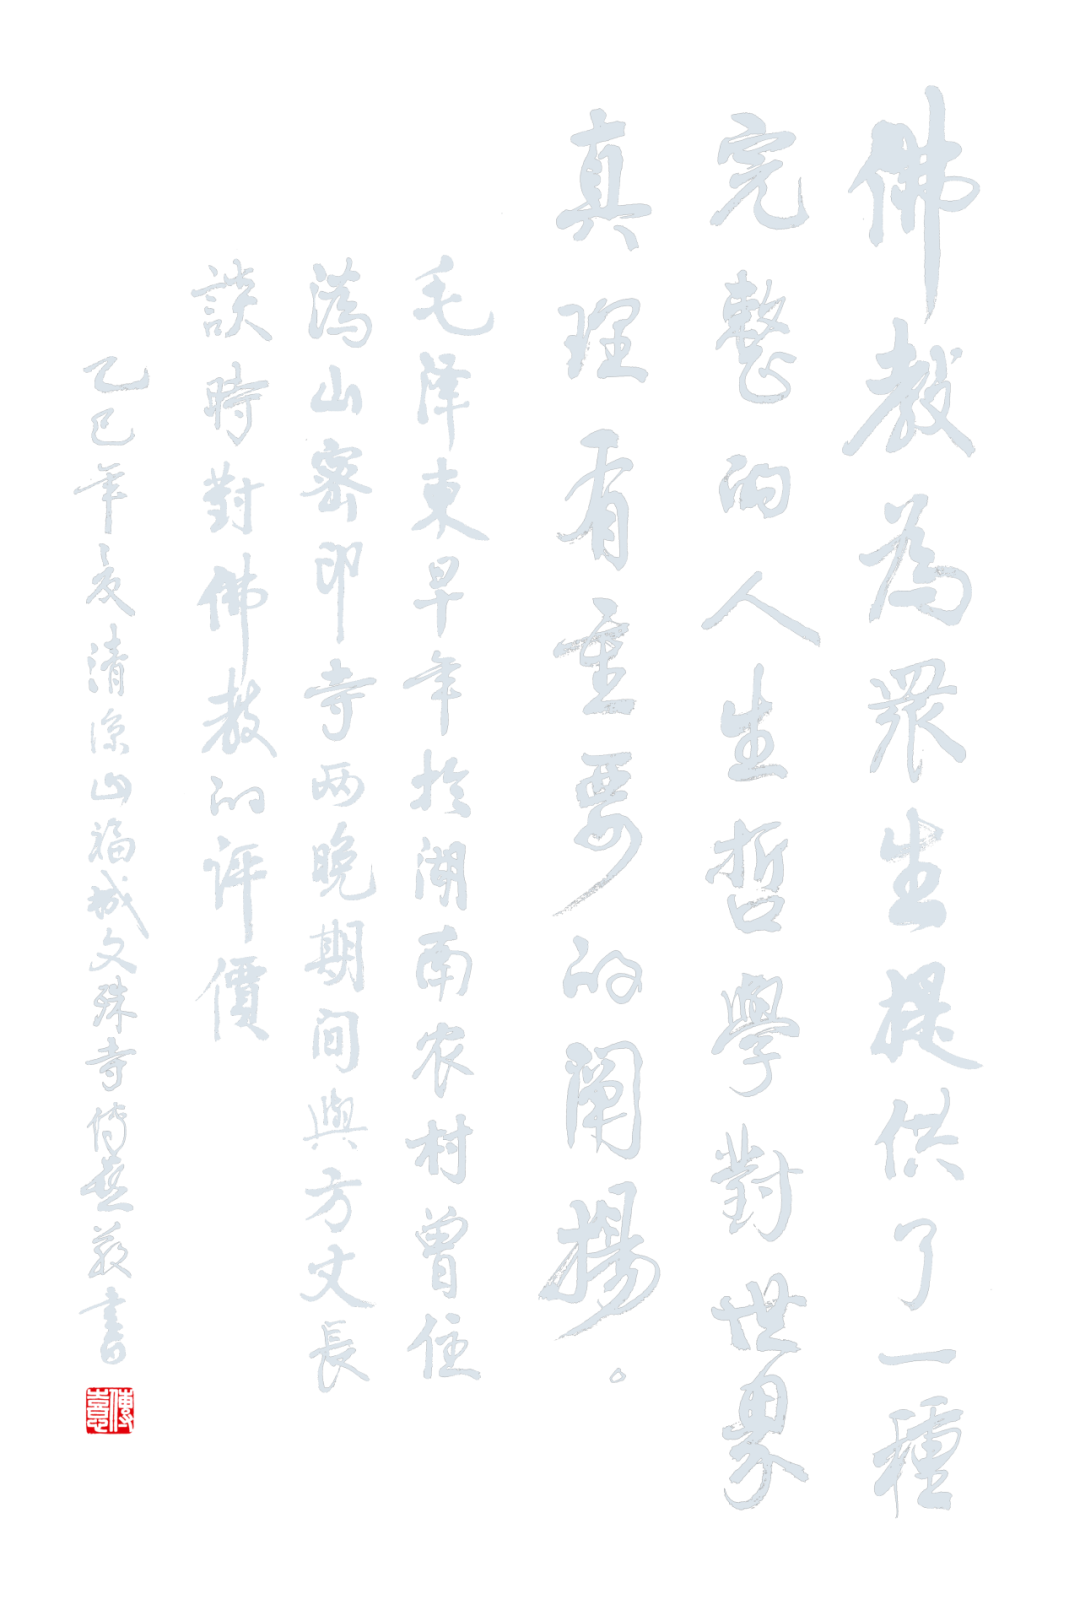 佛教為眾生提供了一種
完整的人生哲學對世界
真理有重要的阐揚。
毛泽東早年於湖南农村曾住
溈山密印寺两晚期间與方丈長
談時對佛教的评價
乙巳年夏清涼山福城文殊寺傳
書